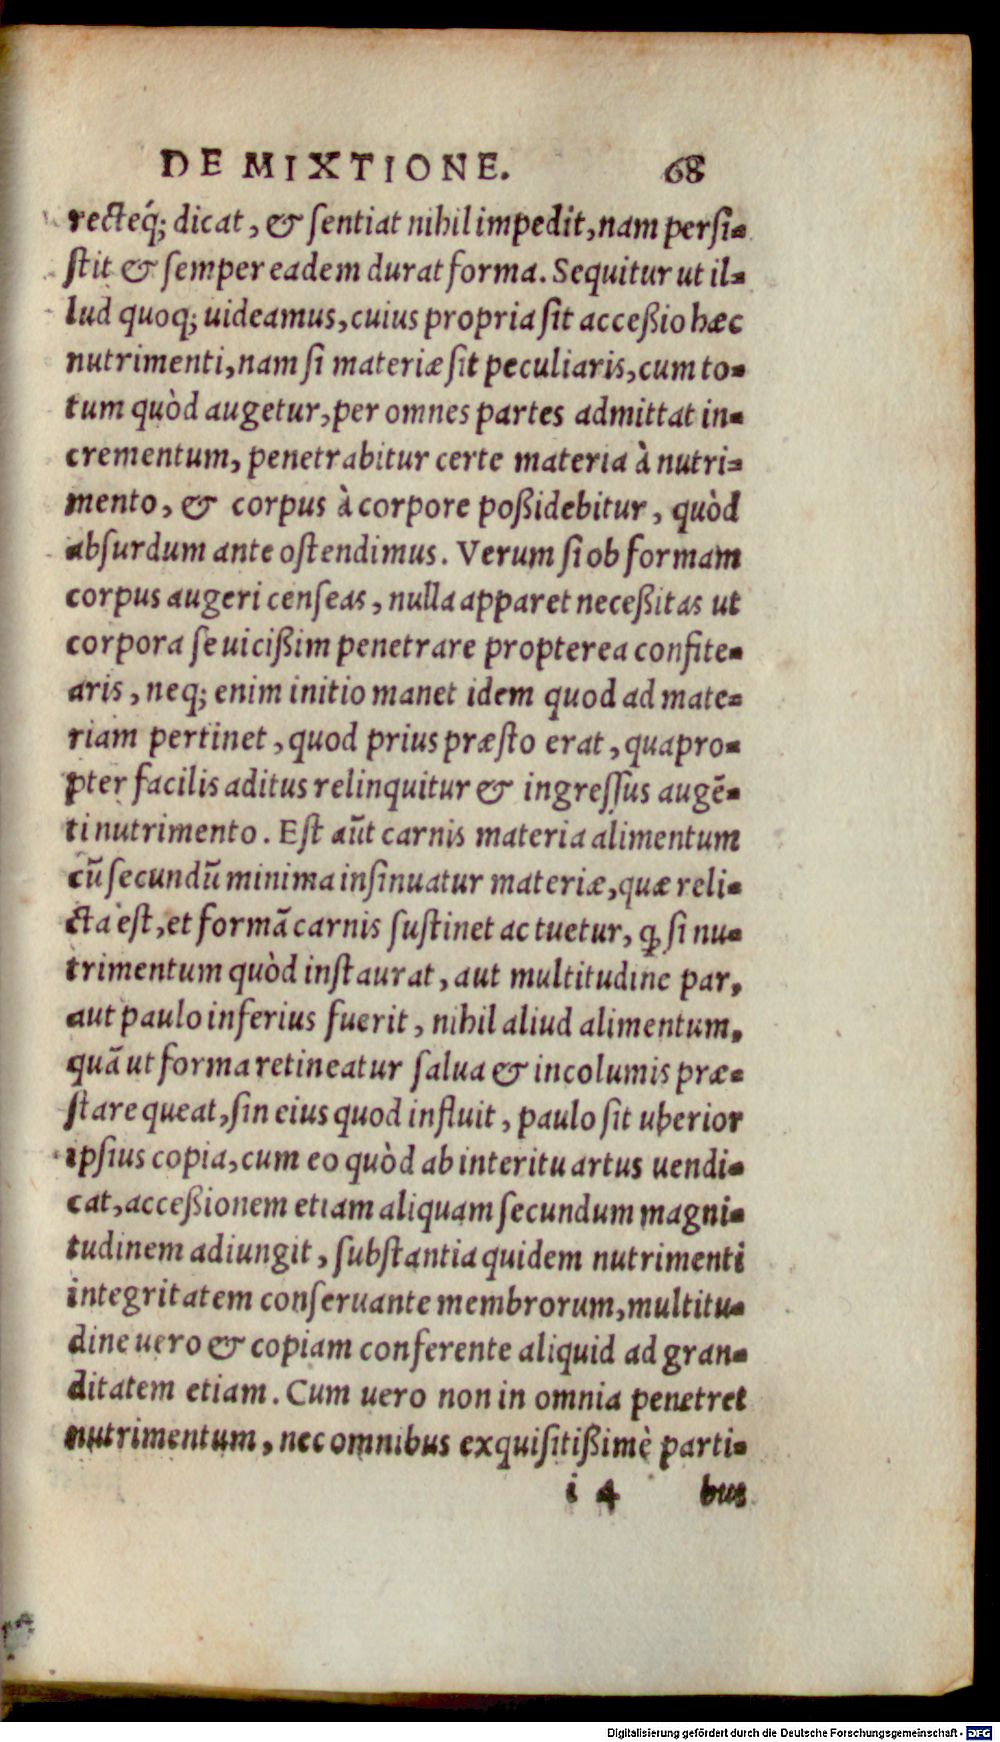 DE MIXTIONE. 68
recteq́; dicat, & ſentiat nihil impedit, nam perſi-
ſtit & ſemper eadem durat forma. Sequitur ut il-
lud quoq; uideamus, cuius propria ſit acceßio hæc
nutrimenti, nam ſi materiæ ſit peculiaris, cum to-
tum quòd augetur, per omnes partes admittat in-
crementum, penetrabitur certe materia à nutri-
mento, & corpus à corpore poßidebitur, quòd
abſurdum ante oſtendimus. Verum ſi ob formam
corpus augeri cenſeas, nulla apparet neceßitas ut
corpora ſe uicißim penetrare propterea confite-
aris, neq; enim initio manet idem quod ad mate-
riam pertinet, quod prius præſto erat, quapro-
pter facilis aditus relinquitur & ingreſſus augẽ-
ti nutrimento. Eſt aũt carnis materia alimentum
cũ ſecundũ minima inſinuatur materiæ, quæ reli-
cta eſt, et formã carnis ſuſtinet ac tuetur, ꝙ ſi nu-
trimentum quòd inſtaurat, aut multitudine par,
aut paulo inferius fuerit, nihil aliud alimentum,
quã ut forma retineatur ſalua & incolumis præ-
ſtare queat, ſin eius quod influit, paulo ſit uberior
ipſius copia, cum eo quòd ab interitu artus uendi-
cat, acceßionem etiam aliquam ſecundum magni-
tudinem adiungit, ſubſtantia quidem nutrimenti
integritatem conſeruante membrorum, multitu-
dine uero & copiam conferente aliquid ad gran-
ditatem etiam. Cum uero non in omnia penetret
nutrimentum, nec omnibus exquiſitißimè parti-
i 4 bus
Digitalisierung gefördert durch die Deutsche Forschungsgemeinschaft - DFG